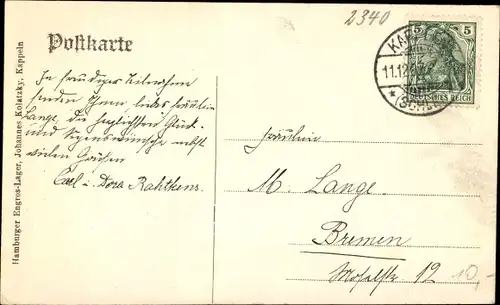 2340
Postkarte
In freudiger Teilnahme
senden Ihnen liebes Fräulein
Lange, die herzlichsten Glück-
und Segenswünsche nebst
vielen Grüßen
Carl u. Dora Rahtkens.
Hamburger Engros-Lager, Johannes Kolatzky, Kappeln
KAPPELN
11.12.
5
5
DEUTSCHES REICH
Fräulein
M. Lange.
Bremen
Moselstr 12
10,-